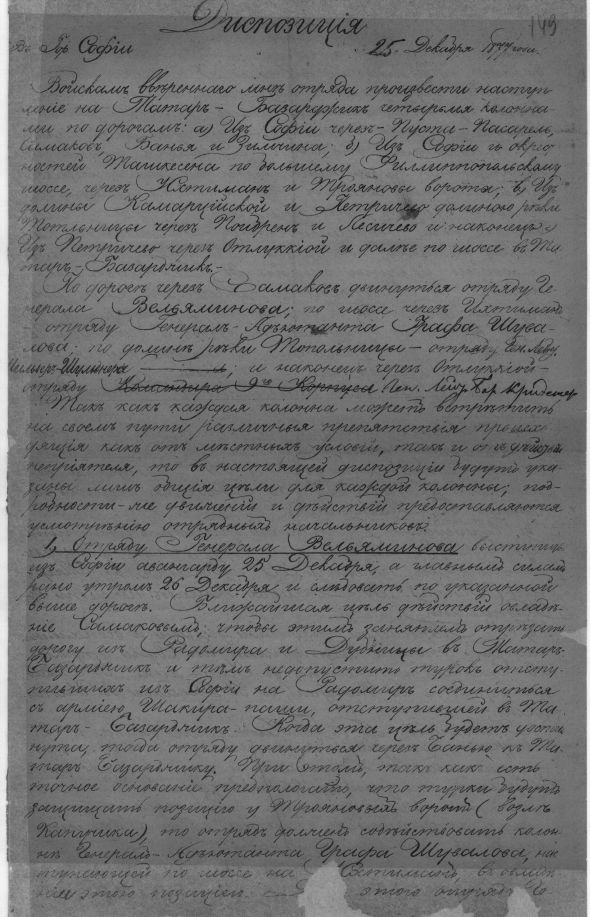 Диспозиція
149
Въ Гор. Софіи 25 Декабря 1877 года.
Войскамъ ввѣреннаго мнѣ отряда произвести наступ-
леніе на Татаръ-Базарджикъ четырьмя колонна-
ми по дорогамъ: а) Изъ Софіи чрезъ Пусти-Пасарель,
Самаковъ, Банья и Зимчина; б) Изъ Софіи и окрес-
ностей Ташкесена по большему Филиппопольскому
шоссе, черезъ Ихтиманъ и Трояновы ворота; в) Изъ
долины Камарційской и Петричево долиною рѣки
Топольницы черезъ Поибренъ и Лесичево и наконецъ г)
Изъ Петричево черезъ Отлуккіой и далѣе по шоссе въ Та-
таръ-Базарджикъ.
По дорогѣ черезъ Самаковъ двинуться отряду Ге-
нерала Вельяминова; по шоссе черезъ Ихтиманъ
отряду Генералъ-Адъютанта Графа Шува-
лова; по долинѣ рѣки Топольницы – отряду Ген. Лейт.
Шильдеръ-Шульднера; и наконецъ черезъ Отлуккіой –
отряду Командира 9го Корпуса Ген. Лейт. Бар. Криденера
Такъ какъ каждая колонна можетъ встрѣтить
на своемъ пути различныя препятствія происхо-
дящія какъ отъ мѣстныхъ условій, такъ и отъ дѣйствій
непріятеля, то въ настоящей диспозиціи будутъ ука-
заны лишь общія цѣли для каждой колонны; под-
робности-же движеній и дѣйствій предоставляются
усмотрѣнію отрядныхъ начальниковъ:
1, Отряду Генерала Вельяминова выступить
изъ Софіи авангарду 25 Декабря, а главнымъ силамъ
рано утромъ 26 Декабря и слѣдовать по указанной
выше дорогѣ. Ближайшая цѣль дѣйствій овладѣ-
ніе Самаковымъ; чтобы этимъ занятіемъ отрѣзать
дорогу изъ Радомира и Дубницы въ Татаръ-
Базарджикъ и тѣмъ недопустить турокъ отсту-
пившихъ изъ Софіи на Радомиръ соединиться
съ арміею Шакира-паши, отступившей въ Та-
таръ-Базарджикъ. Когда эта цѣль будетъ достиг-
нута, тогда отряду двинуться черезъ Банью къ Та-
таръ Базарджику. При этомъ, такъ какъ есть
точное основаніе предполагать, что турки будутъ
защищать позицію у Трояновыхъ воротъ (возлѣ
Капушика), то отрядъ долженъ содѣйствовать колон-
нѣ Генералъ-Адъютанта Графа Шувалова, нас-
тупающей по шоссе на Ихтиманъ, въ овладѣ-
ніи этого позиціею. этого отряда